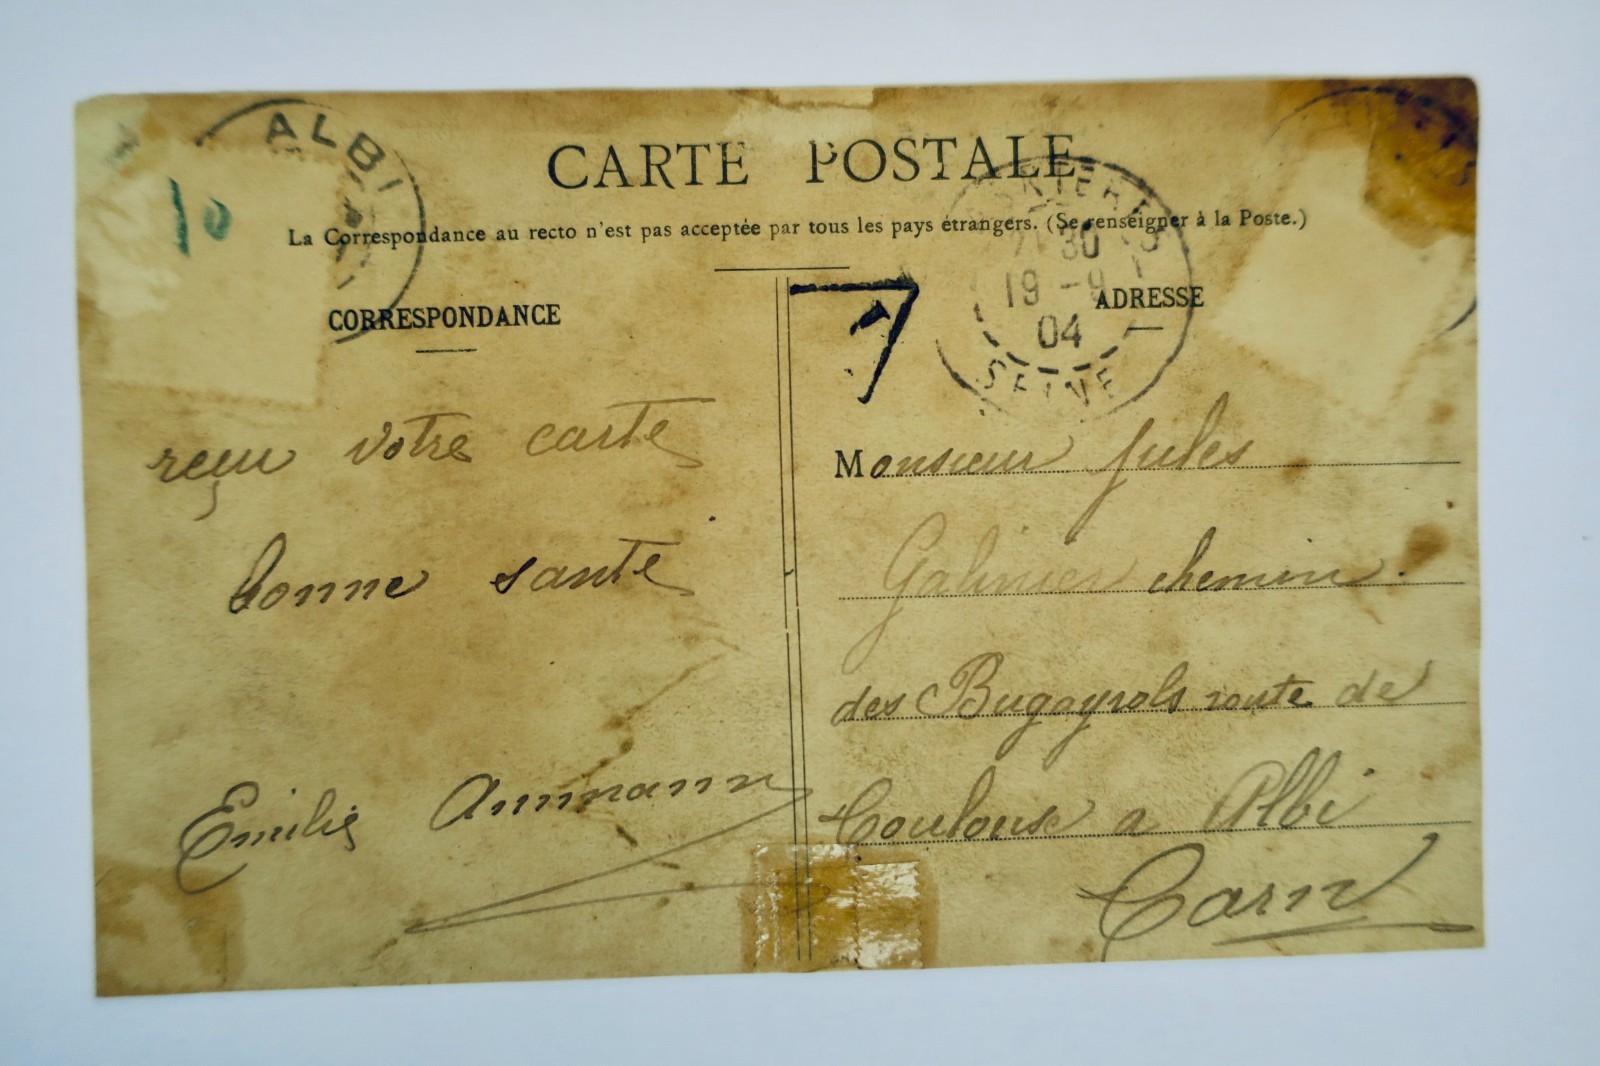 ALBI
CARTE POSTALE
10
La Correspondance au recto n'est pas acceptée par tous les pays étrangers. (Se renseigner à la Poste.)
30
19 - 9
04
SEINE
CORRESPONDANCE
ADRESSE
reçu votre carte
bonne santé
Emilie Ammann
Monsieur Jules
Galinier chemin
des Bugayrols route de
Toulouse a Albi
Tarn